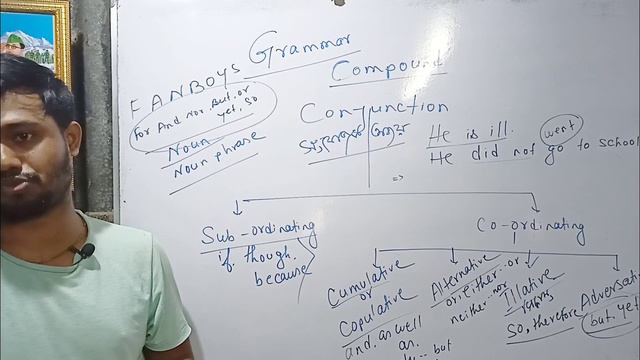 Grammar
FANBOYS
For And Nor, But, or
yet, so
Noun
Noun phrase
Compound
Conjunction
He is ill.
went
He did not go to school
=>
Sub-ordinating
if, though.
because
Co-ordinating
Cumulative
or
Copulative
and. as well
as.
but
Alternative
or either..or
neither..nor
Illative
so, therefore
Adversati
but, yet